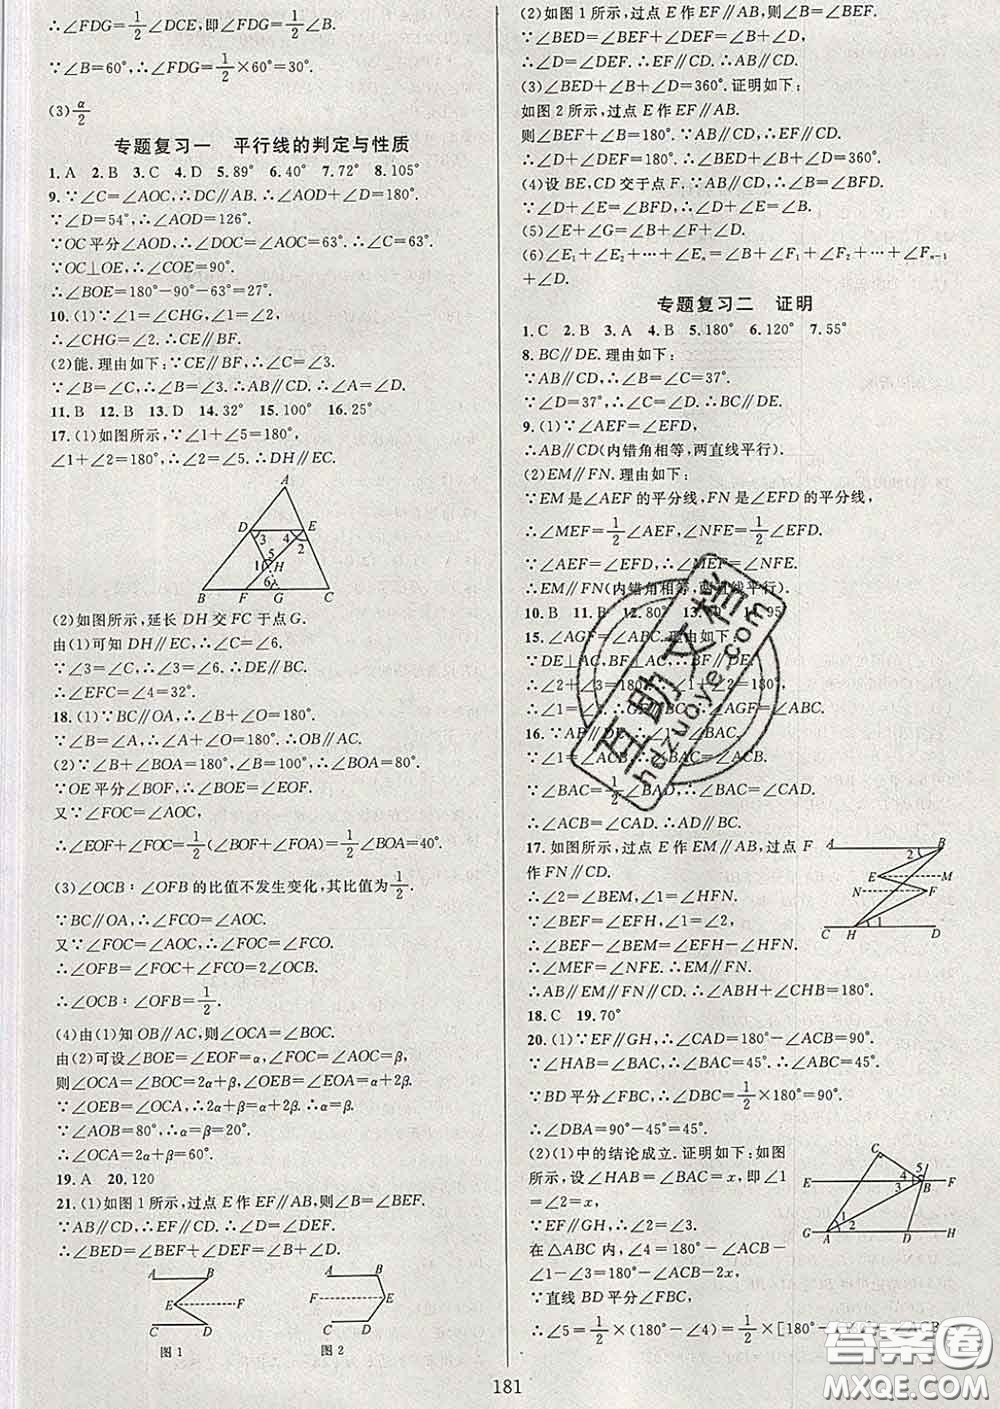 ∴∠FDG=1/2∠DCE,即∠FDG=1/2∠B.
∵∠B=60°,∴∠FDG=1/2×60°=30°.
(3)α/2
专题复习一 平行线的判定与性质
1.A 2.B 3.C 4.D 5.89° 6.40° 7.72° 8.105°
9.∵∠C=∠AOC,∴DC∥AB.∴∠D+∠AOD=180°.
∵∠D=54°,∴∠AOD=126°.
∵OC平分∠AOD,∴∠DOC=∠AOC=63°.
∵OC⊥OE,∴∠COE=90°.
∴∠BOE=180°-90°-63°=27°.
10.(1)∵∠1=∠CHG,∠1=∠2,
∴∠CHG=∠2.∴CE∥BF.
(2)能.理由如下:∵CE∥BF,∴∠C=∠3.
∵∠B=∠C,∴∠3=∠B.∴AB∥CD.∴∠A=∠D.
11.B 12.B 13.D 14.32° 15.100° 16.25°
17.(1)如图所示,∵∠1+∠5=180°,
∠1+∠2=180°,∴∠2=∠5.∴DH∥EC.
A
D E
3 4 2
5
1 H
6
B F G C
(2)如图所示,延长DH交FC于点G.
由(1)可知DH∥EC,∴∠C=∠6.
∵∠3=∠C,∴∠3=∠6.∴DE∥BC.
∴∠EFC=∠4=32°.
18.(1)∵BC∥OA,∴∠B+∠O=180°.
∵∠B=∠A,∴∠A+∠O=180°.∴OB∥AC.
(2)∵∠B+∠BOA=180°,∠B=100°,∴∠BOA=80°.
∵OE平分∠BOF,∴∠BOE=∠EOF.
又∵∠FOC=∠AOC,
∴∠EOF+∠FOC=1/2(∠BOF+∠FOA)=1/2∠BOA=40°.
(3)∠OCB∶∠OFB的比值不发生变化,其比值为1/2.
∵BC∥OA,∴∠FCO=∠AOC.
又∵∠FOC=∠AOC,∴∠FOC=∠FCO.
∴∠OFB=∠FOC+∠FCO=2∠OCB.
∴∠OCB∶∠OFB=1/2.
(4)由(1)知OB∥AC,则∠OCA=∠BOC.
由(2)可设∠BOE=∠EOF=α,∠FOC=∠AOC=β,
则∠OCA=∠BOC=2α+β,∠OEB=∠EOA=α+2β.
∵∠OEB=∠OCA,∴2α+β=α+2β.∴α=β.
∵∠AOB=80°,∴α=β=20°.
∴∠OCA=2α+β=60°.
19.A 20.120
21.(1)如图1所示,过点E作EF∥AB,则∠B=∠BEF.
∵AB∥CD,∴EF∥CD.∴∠D=∠DEF.
∴∠BED=∠BEF+∠DEF=∠B+∠D.
A B
E F
C D
图1
A B
F E
C D
图2
(2)如图1所示,过点E作EF∥AB,则∠B=∠BEF.
∵∠BED=∠BEF+∠DEF=∠B+∠D,
∴∠D=∠DEF.∴EF∥CD.∴AB∥CD.
(3)∠BED+∠B+∠D=360°.证明如下:
如图2所示,过点E作EF∥AB.
则∠BEF+∠B=180°.∵AB∥CD,∴EF∥CD.
∴∠D+∠DEF=180°.∴∠BED+∠B+∠D=360°.
(4)设BE,CD交于点F.∵AB∥CD,∴∠BFD=∠B.
∵∠D+∠E=∠BFD,∴∠D+∠E=∠B.
(5)∠E+∠G=∠B+∠F+∠D.
(6)∠E1+∠E2+…+∠En=∠B+∠F1+∠F2+…+∠Fn-1
+∠D.
专题复习二 证明
1.C 2.B 3.A 4.B 5.180° 6.120° 7.55°
8.BC∥DE.理由如下:
∵AB∥CD,∴∠B=∠C=37°.
∵∠D=37°,∴∠C=∠D.∴BC∥DE.
9.(1)∵∠AEF=∠EFD,
∴AB∥CD(内错角相等,两直线平行).
(2)EM∥FN.理由如下:
∵EM是∠AEF的平分线,FN是∠EFD的平分线,
∴∠MEF=1/2∠AEF,∠NFE=1/2∠EFD.
∵∠AEF=∠EFD,∴∠MEF=∠NFE.
∴EM∥FN(内错角相等,两直线平行).
10.B 11.B 12.80° 13. 95°
15.∠AGF=∠ABC.理由如下:
∵DE⊥AC,BF⊥AC,∴BF∥DE.
∴∠2+∠3=180°.∵∠1+∠2=180°,
∴∠1=∠3.∴GF∥BC.∴∠AGF=∠ABC.
16.∵AB∥DE,∴∠1=∠BAC.
∵∠1=∠ACB,∴∠BAC=∠ACB.
∵∠BAC=1/2∠BAD,∴∠BAC=∠CAD.
∴∠ACB=∠CAD.∴AD∥BC.
17.如图所示,过点E作EM∥AB,过点F
作FN∥CD.
∴∠2=∠BEM,∠1=∠HFN.
∵∠BEF=∠EFH,∠1=∠2,
∴∠BEF-∠BEM=∠EFH-∠HFN.
∴∠MEF=∠NFE.∴EM∥FN.
∴AB∥EM∥FN∥CD.∴∠ABH+∠CHB=180°.
A B
2
E M
N F
1
C H D
18.C 19.70°
20.(1)∵EF∥GH,∴∠CAD=180°-∠ACB=90°.
∵∠HAB=∠BAC,∴∠BAC=45°.∴∠ABC=45°.
∵BD平分∠FBC,∴∠DBC=1/2×180°=90°.
∴∠DBA=90°-45°=45°.
(2)(1)中的结论成立.证明如下:如图
所示,设∠HAB=∠BAC=x,即∠1=
∠2=x,
∵EF∥GH,∴∠2=∠3.
在△ABC内,∠4=180°-∠ACB-
∠1-∠3=180°-∠ACB-2x,
∵直线BD平分∠FBC,
∴∠5=1/2×(180°-∠4)=1/2×[180°-
C
5
E 4 3 B F
1
2
G A D H
181
互助文档
hdzuoye.com
答案圈
MXQE.COM